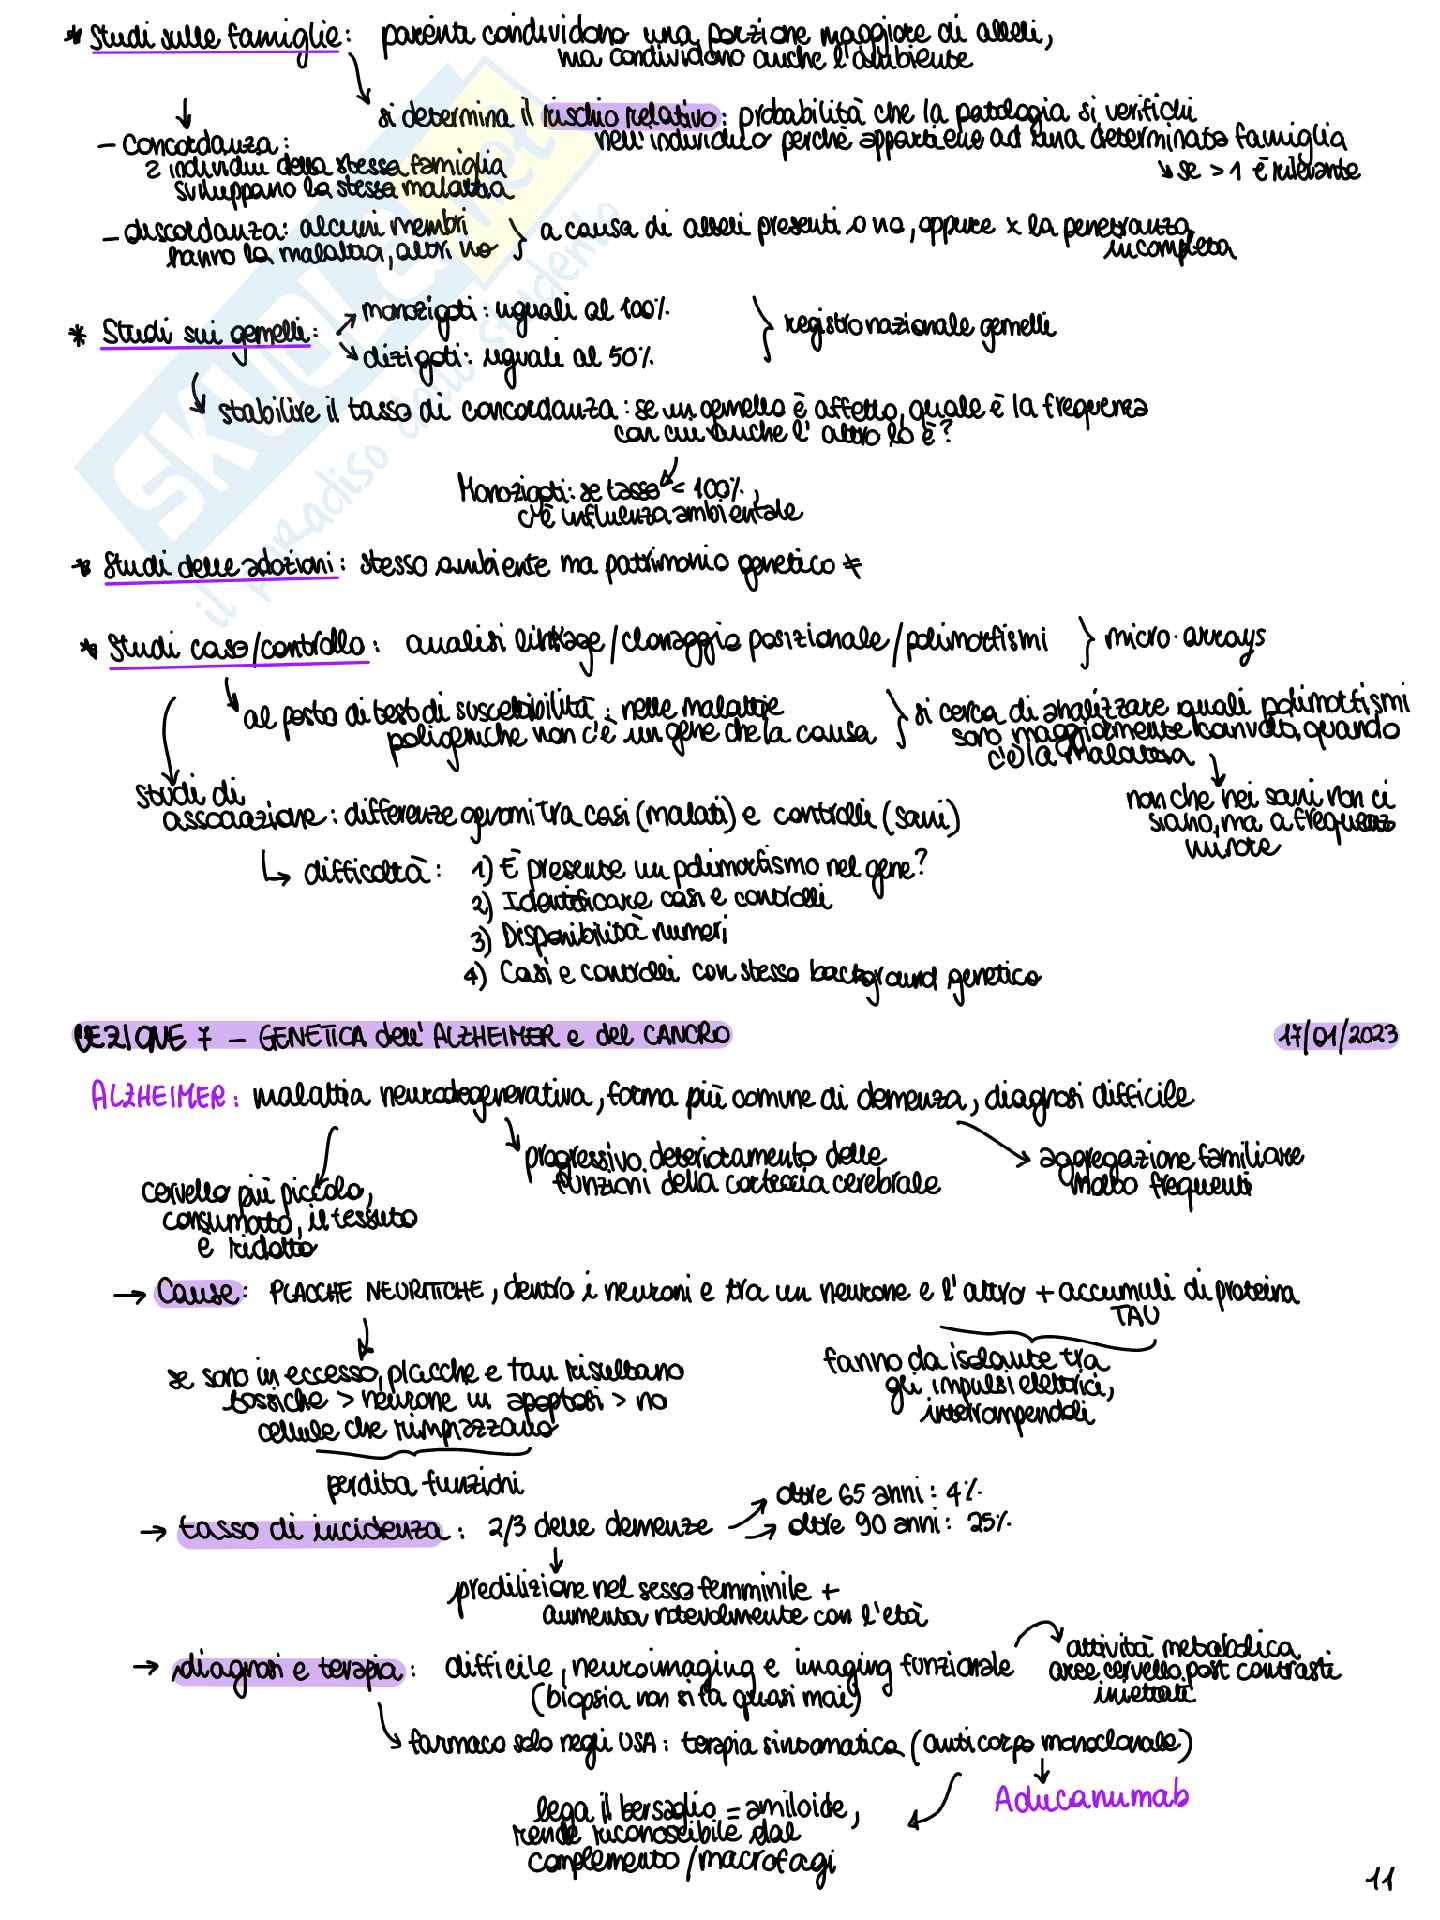 * Studi sulle famiglie: parenti condividono una porzione maggiore di alleli,
ma condividono anche l'ambiente
si determina il rischio relativo: probabilità che la patologia si verifichi
nell'individuo perchè appartiene ad una determinata famiglia
↳ se > 1 è rilevante
- concordanza:
2 individui della stessa famiglia
sviluppano la stessa malattia
- discordanza: alcuni membri
hanno la malattia, altri no
} a causa di alleli presenti o no, oppure x la penetranza
incompleta
* Studi sui gemelli:
monozigoti: uguali al 100%
dizigoti: uguali al 50%
} registro nazionale gemelli
stabilire il tasso di concordanza: se un gemello è affetto, quale è la frequenza
con cui anche l'altro lo è?
Monozigoti: se tasso < 100%,
c'è influenza ambientale
* Studi delle adozioni: stesso ambiente ma patrimonio genetico ≠
* Studi caso/controllo: analisi linkage/clonaggio posizionale/polimorfismi } micro-arrays
al posto di test di suscettibilità: nelle malattie
poligeniche non c'è un gene che la causa
} si cerca di analizzare quali polimorfismi
sono maggiormente coinvolti, quando
c'è la malattia
non che nei sani non ci
siano, ma a frequenza
minore
studi di
associazione: differenze genomi tra casi (malati) e controlli (sani)
↳ difficoltà: 1) È presente un polimorfismo nel gene?
2) Identificare casi e controlli
3) Disponibilità numeri
4) Casi e controlli con stesso background genetico
LEZIONE 7 - GENETICA dell'ALZHEIMER e del CANCRO 17/01/2023
ALZHEIMER: malattia neurodegenerativa, forma più comune di demenza, diagnosi difficile
progressivo deterioramento delle
funzioni della corteccia cerebrale
aggregazione familiare
molto frequenti
cervello più piccolo,
consumato, il tessuto
è ridotto
→ Cause: PLACCHE NEURITICHE, dentro i neuroni e tra un neurone e l'altro + accumuli di proteina
TAU
se sono in eccesso, placche e tau risultano
tossiche > neurone in apoptosi > no
cellule che rimpiazzano
perdita funzioni
fanno da isolante tra
gli impulsi elettrici,
interrompendoli
→ tasso di incidenza: 2/3 delle demenze
oltre 65 anni: 4%
oltre 90 anni: 25%
predilizione nel sesso femminile +
aumenta notevolmente con l'età
→ diagnosi e terapia: difficile, neuroimaging e imaging funzionale
(biopsia non si fa quasi mai)
attività metabolica
aree cervello post contrasti
iniettati
farmaco solo negli USA: terapia sintomatica (anticorpo monoclonale)
Aducanumab
lega il bersaglio = amiloide,
rende riconoscibile dal
complemento/macrofagi
11
SKUOLA.net
il paradiso dello studente